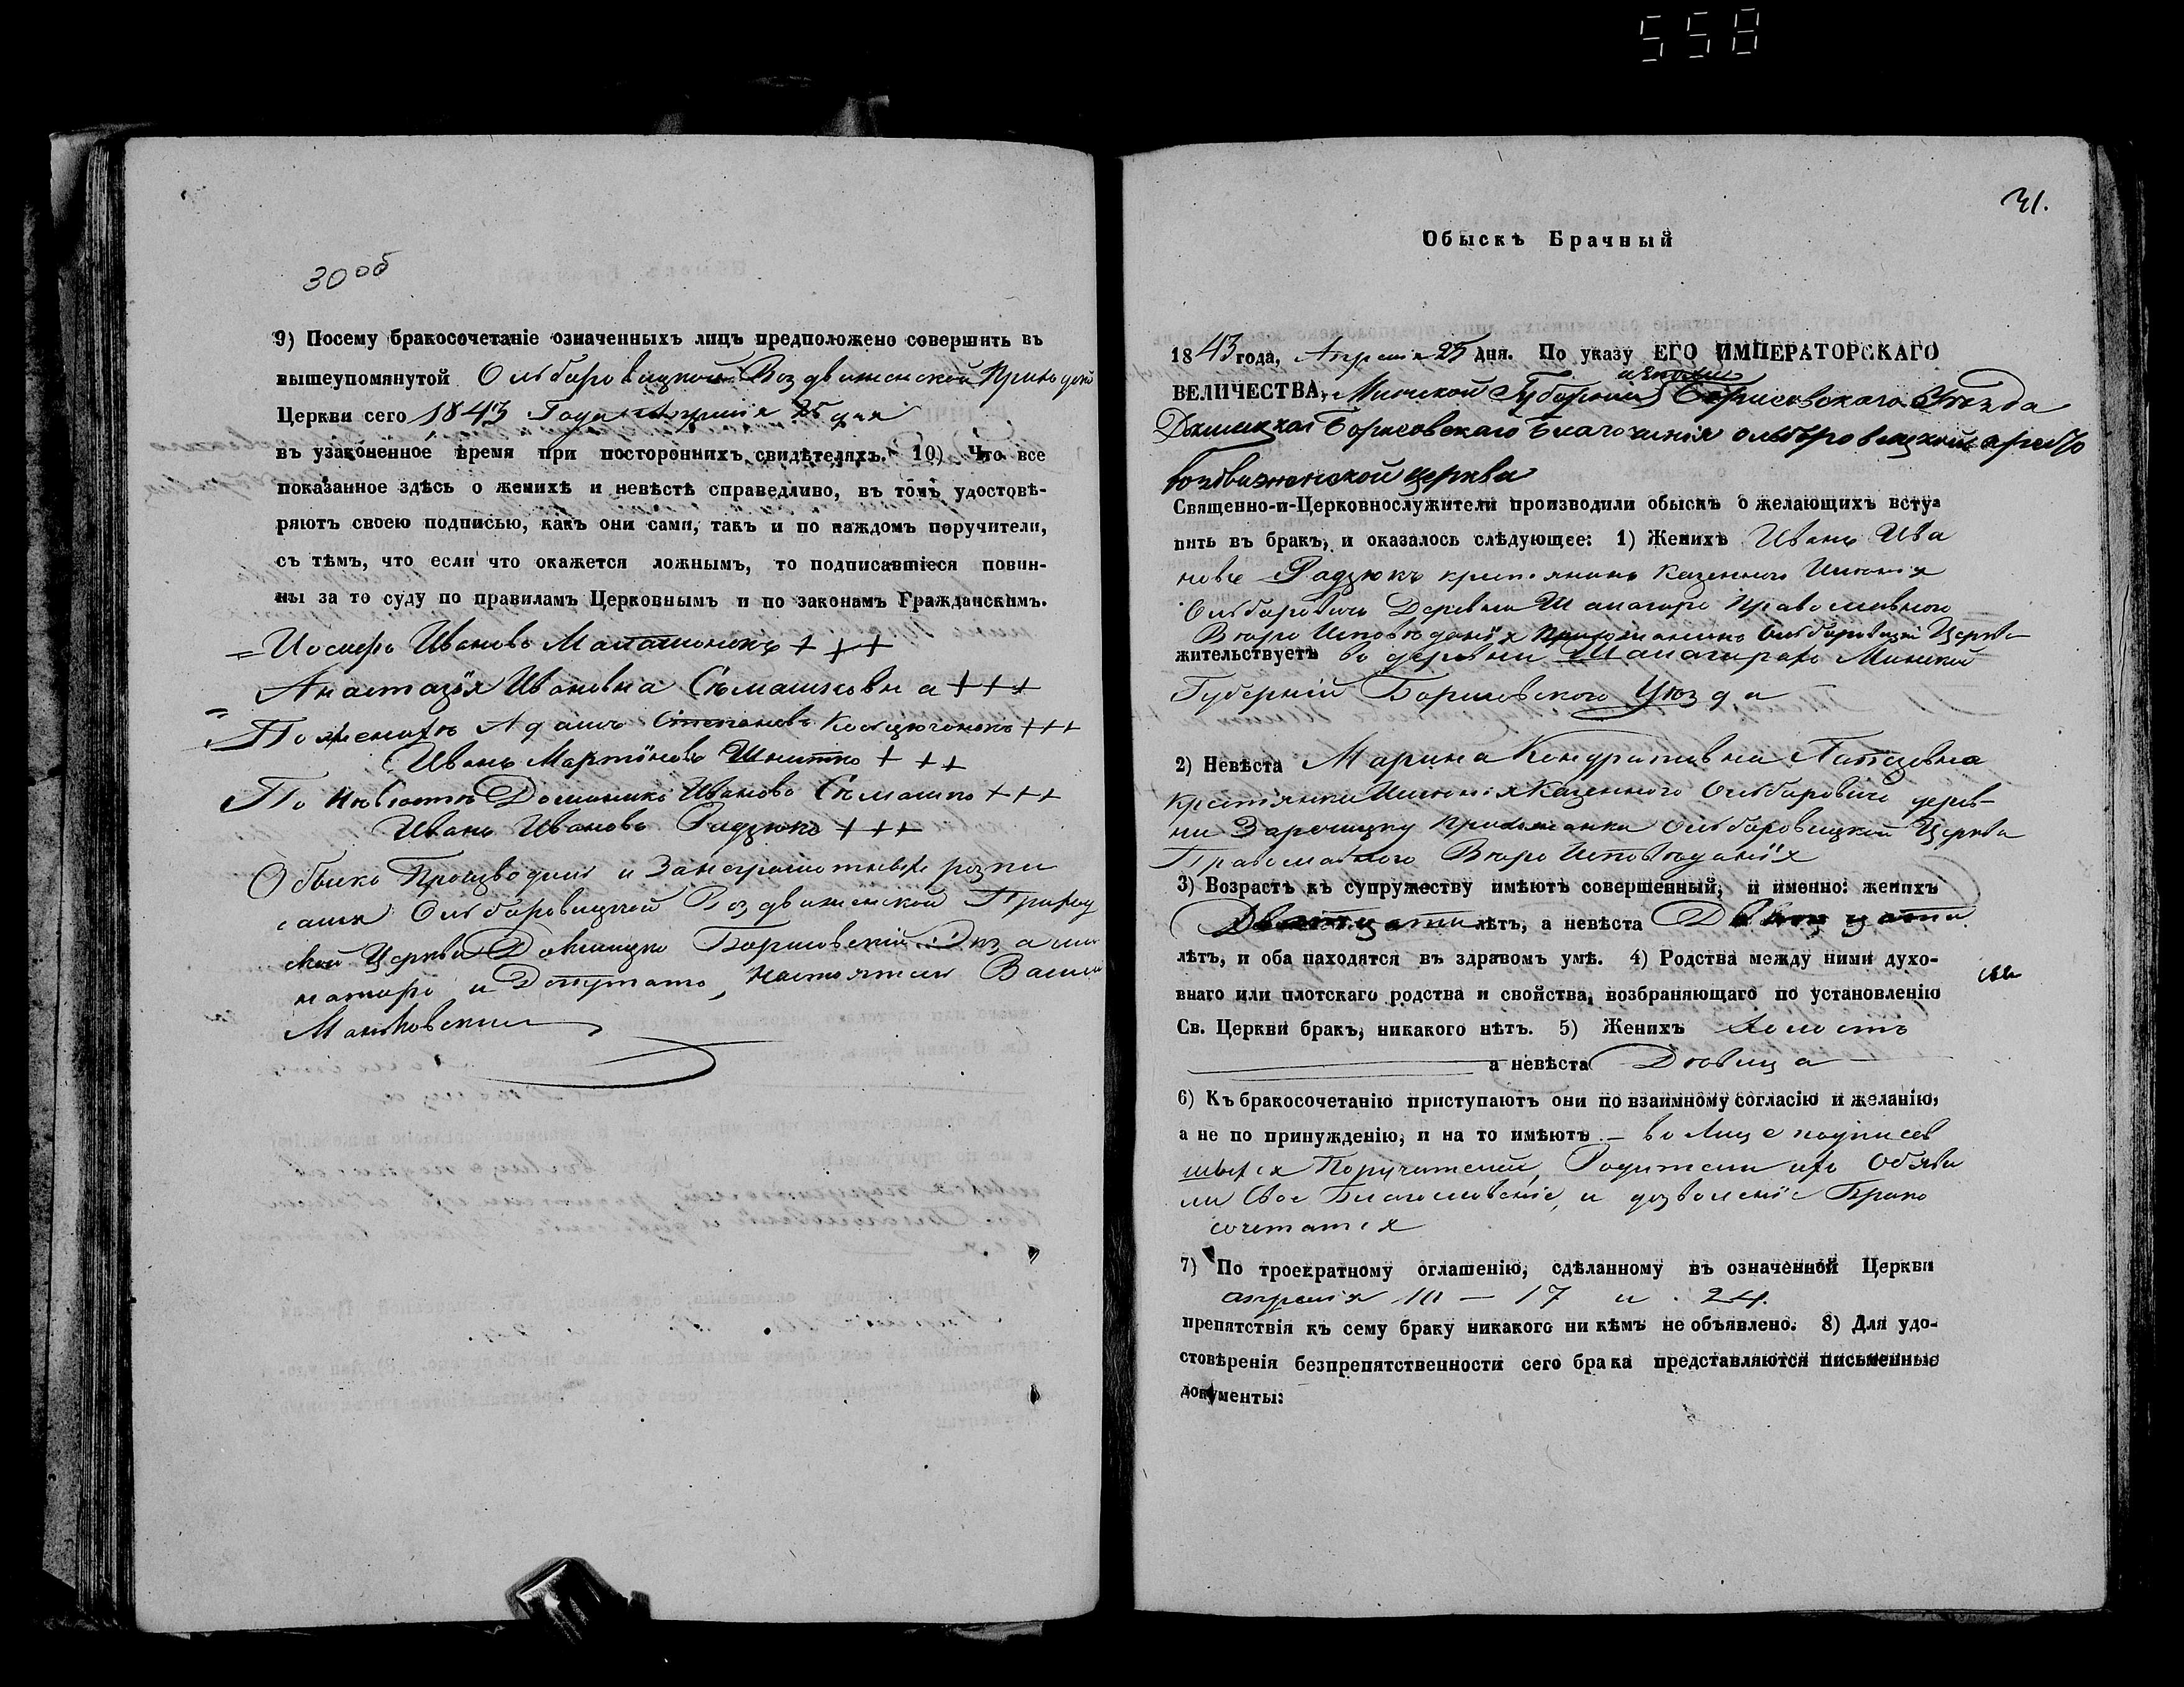 558
30 об
9) Посему бракосочетаніе означенныхъ лицъ предположено совершить въ
вышеупомянутой Ольбаровицкой Воздвиженской Приходской
Церкви сего 1843 Года Апрѣля 25 дня
въ узаконенное время при постороннихъ свидѣтеляхъ. 10) Что все
показанное здѣсь о женихѣ и невѣстѣ справедливо, въ томъ удостовѣ-
ряютъ своею подписью, какъ они сами, такъ и по каждомъ поручители,
съ тѣмъ, что если что окажется ложнымъ, то подписавшіеся повин-
ны за то суду по правиламъ Церковнымъ и по законамъ Гражданскимъ.
Иосифъ Ивановъ +++
Анастазія Ивановна Сѣмашковна +++
По женихѣ Адамъ Степановъ +++
Иванъ Мартиновъ Шнитко +++
По Невѣстѣ Доминикъ Ивановъ Сѣмашко +++
Иванъ Ивановъ Радзюкъ +++
Обыскъ Производилъ и За неграмотныхъ розпи
сался Ольбаровицкой Воздвиженской Приход
ской Церкви Докшицко Борисовскій Экзами
наторъ и Депутатъ, Настоятель Васили
Маньковскии
31.
Обыскъ Брачный
1843 года, Апрѣля 25 дня. По указу ЕГО ИМПЕРАТОРСКАГО
ВЕЛИЧЕСТВА, Минской Губерніи Борисовскаго Уѣзда
Борисовскаго Благочинія Ольборовицкой
воздвиженской церкви
Священно-и-Церковнослужители производили обыскъ о желающихъ всту-
пить въ бракъ, и оказалось слѣдующее: 1) Женихъ Иванъ Ива
новъ Радзюкъ крестянинъ Казенного Имѣнія
Ольбаровичъ Деревни Православного
Вѣро Исповѣданія Прихожанинъ Ольбаровицкой Церкви
жительствуетъ въ деревни Минской
Губерніи Борисовского Уѣзда
2) Невѣста Марина Кондратовна
Крестянка Имѣнія Казенного Ольбаровичъ дерев-
ни Заречицку Прихожанка Ольбаровицкой Церкви
Православного Вѣро Исповѣданія
3) Возрастъ къ супружеству имѣютъ совершенный, и именно: женихъ
Дватцати лѣтъ, а невѣста
лѣтъ, и оба находятся въ здравомъ умѣ. 4) Родства между ними духо-
внаго или плотскаго родства и свойства, возбраняющаго по установленію
Св. Церкви бракъ, никакого нѣтъ. 5) Женихъ Холостъ
а невѣста Дѣвица
6) Къ бракосочетанію приступаютъ они по взаимному согласію и желанію,
а не по принужденію, и на то имѣютъ – въ Лицѣ подписав
шихся Поручителей, Родители ихъ Объяви
ли Свое Благословеніе, и дозволеніе Брако
сочетатся
7) По троекратному оглашенію, сдѣланному въ означенной Церкви
апрѣля 10 – 17 и 24.
препятствія къ сему браку никакого ни кѣмъ не объявлено. 8) Для удо-
стовѣренія безпрепятственности сего брака представляются письменные
документы: